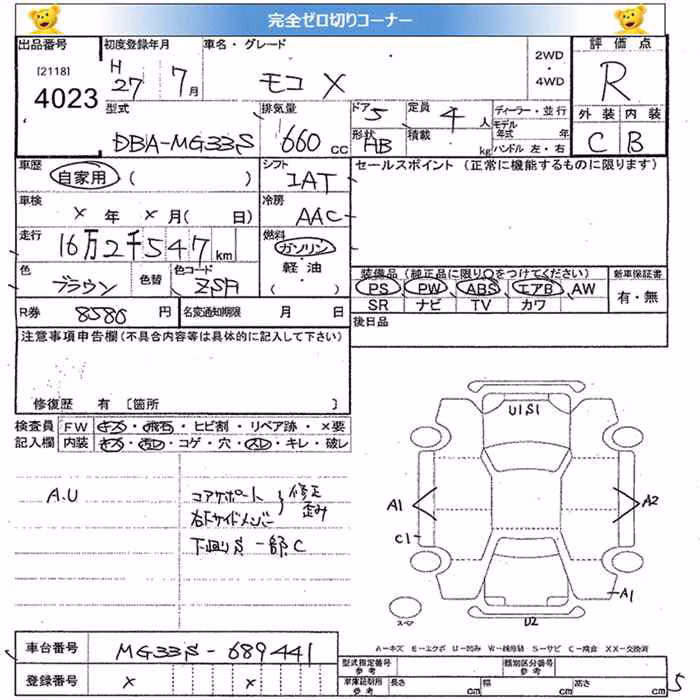 完全ゼロ切りコーナー
出品番号
[2118]
4023
初度登録年月
H27 7月
車名・グレード
モコ X
2WD・4WD
評価点
R
外装 内装
C B
型式
DBA-MG33S
排気量
660 CC
ドア 5
形状 HB
定員 4 人
積載 kg
ディーラー・並行
モデル年式 年
ハンドル 左・右
車歴
自家用 ( )
シフト
IAT
セールスポイント (正常に機能するものに限ります)
車検
× 年 × 月( 日)
冷房
AAC
走行
16万2千547km
燃料
ガソリン・軽油
( )
色
ブラウン
色替
色コード
装備品 (純正品に限り○をつけてください)
PS PW ABS エアB AW
SR ナビ TV カワ
新車保証書
有・無
R券 8580 円
名変通知期限 月 日
後日品
注意事項申告欄(不具合内容等は具体的に記入して下さい)
修復歴 有 [箇所 ]
検査員記入欄
FW キズ・飛石・ヒビ割・リペア跡・×要
内装 キズ・汚レ・コゲ・穴・スレ・キレ・破レ
A.U
コアサポート
右下サイドメンバー
修正 歪み
下廻りS 一部C
U1S1
A1
A2
C1
A1
U2
スペア
A-キズ E-エクボ U-凹み W-補修跡 S-サビ C-腐食 XX-交換済
車台番号 MG33S-689441
登録番号 × ×
型式指定番号 参考
類別区分番号 参考
車庫証明用 参考 長さ cm 幅 cm 高さ cm
5